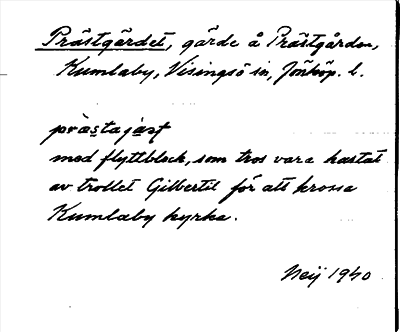 Prästgärdet, gärde å Prästgården,
Kumlaby, Visingsö sn, Jönköp. l.
präs̲taja̲s̲t
med flyttblock, som tros vara kastat
av trollet Gilbertil för att krossa
Kumlaby kyrka.
Neij 1940